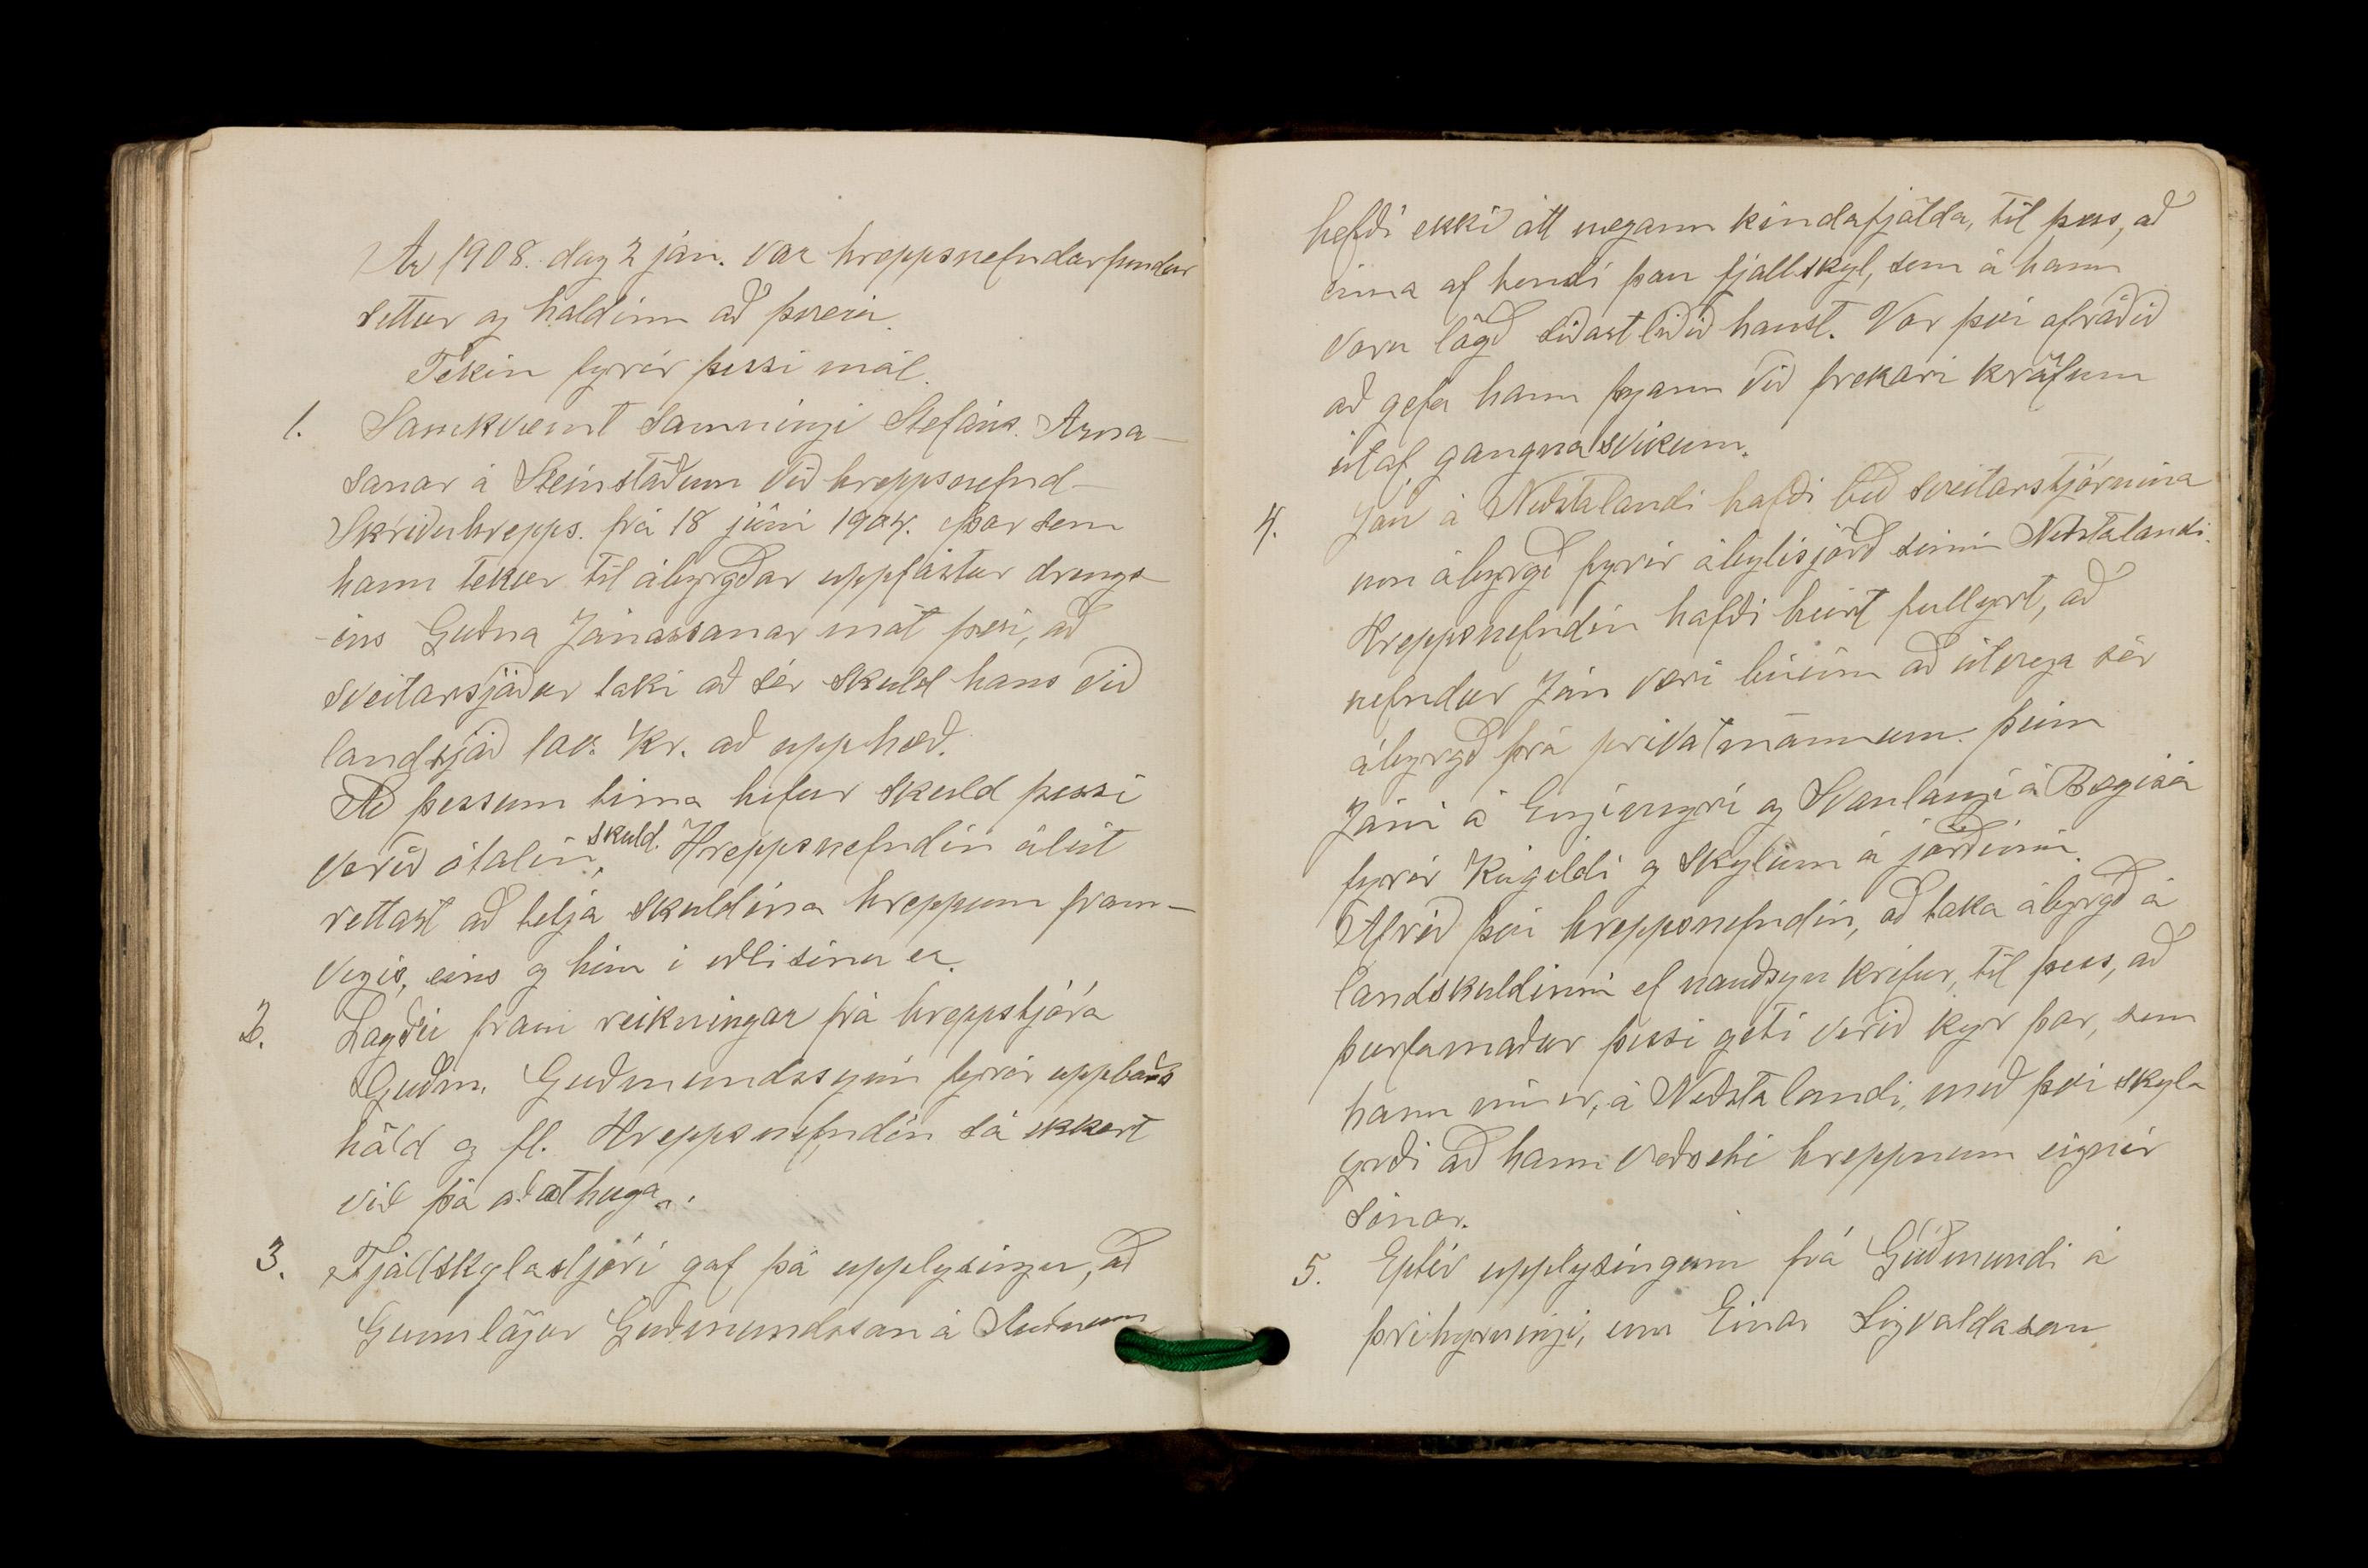 Ár 1908. dag 2 jan. var hreppsnefndarfundur
settur og haldinn að Þverá.
Tekin fyrir þessi mál.
1. Samkvæmt samningi Stefáns Árna-
sonar á Steinstöðum við hreppsnefnd
Skriðuhrepps. frá 18 júní 1904. þar sem
hann tekur til ábyrgðar uppfóstur drengs-
-ins Guðna Jónassonar mót því, að
sveitarsjóður taki að sér skuld hans við
landsjóð 100. kr. að upphæð.
Að þessum tíma hefur skuld þessi
verið ótalin, skuld. Hreppsnefndin álít
rettast að telja skuldina hreppum fram-
vegis, eins og hún í eðli sínu er.
2. Lagðir fram reikningar frá hreppstjóra
Guðm. Guðmundssyni fyrir uppboðs
höld og fl. Hreppsnefndin sá ekkert
við þá að athuga.
3. Fjallskylastjóri gaf þá upplysingu, að
Gunnlögur Guðmundsson á
hefði ekki átt nægann kindafjölda, til þess, að
inna af hendi þau fjallskyl, sem á hann
voru lögð siðastliðið haust. Var því afráðið
að gefa hann fryann við frekari kröfum
útaf gangnasvikum.
4. Jón á Neðstalandi hafði beð sveitarstjórnina
um ábyrgð fyrir ábylisjörð sinni Neðstalandi.
Hreppsnefndin hafði heirt fullyrt, að
nefndur Jón væri búinn að útvega sér
ábyrgð frá privatmönnum. þeim
Jóni á Engimyri og Svanlaugi á Bægisá
fyrir kúgildi og skylum á jörðinni.
Afréð því hreppsnefndin, að taka ábyrgð á
landskuldinni ef nauðsyn krefur, til þess, að
þurfamaður þessi geti verið kyr þar, sem
hann nú er, á Neðstalandi, með því skyl-
yrði að hann veðseti hreppnum eignir
sínar.
5. Eptir upplysingum frá Guðmundi á
Þríhyrningi, um Einar Sigvaldason